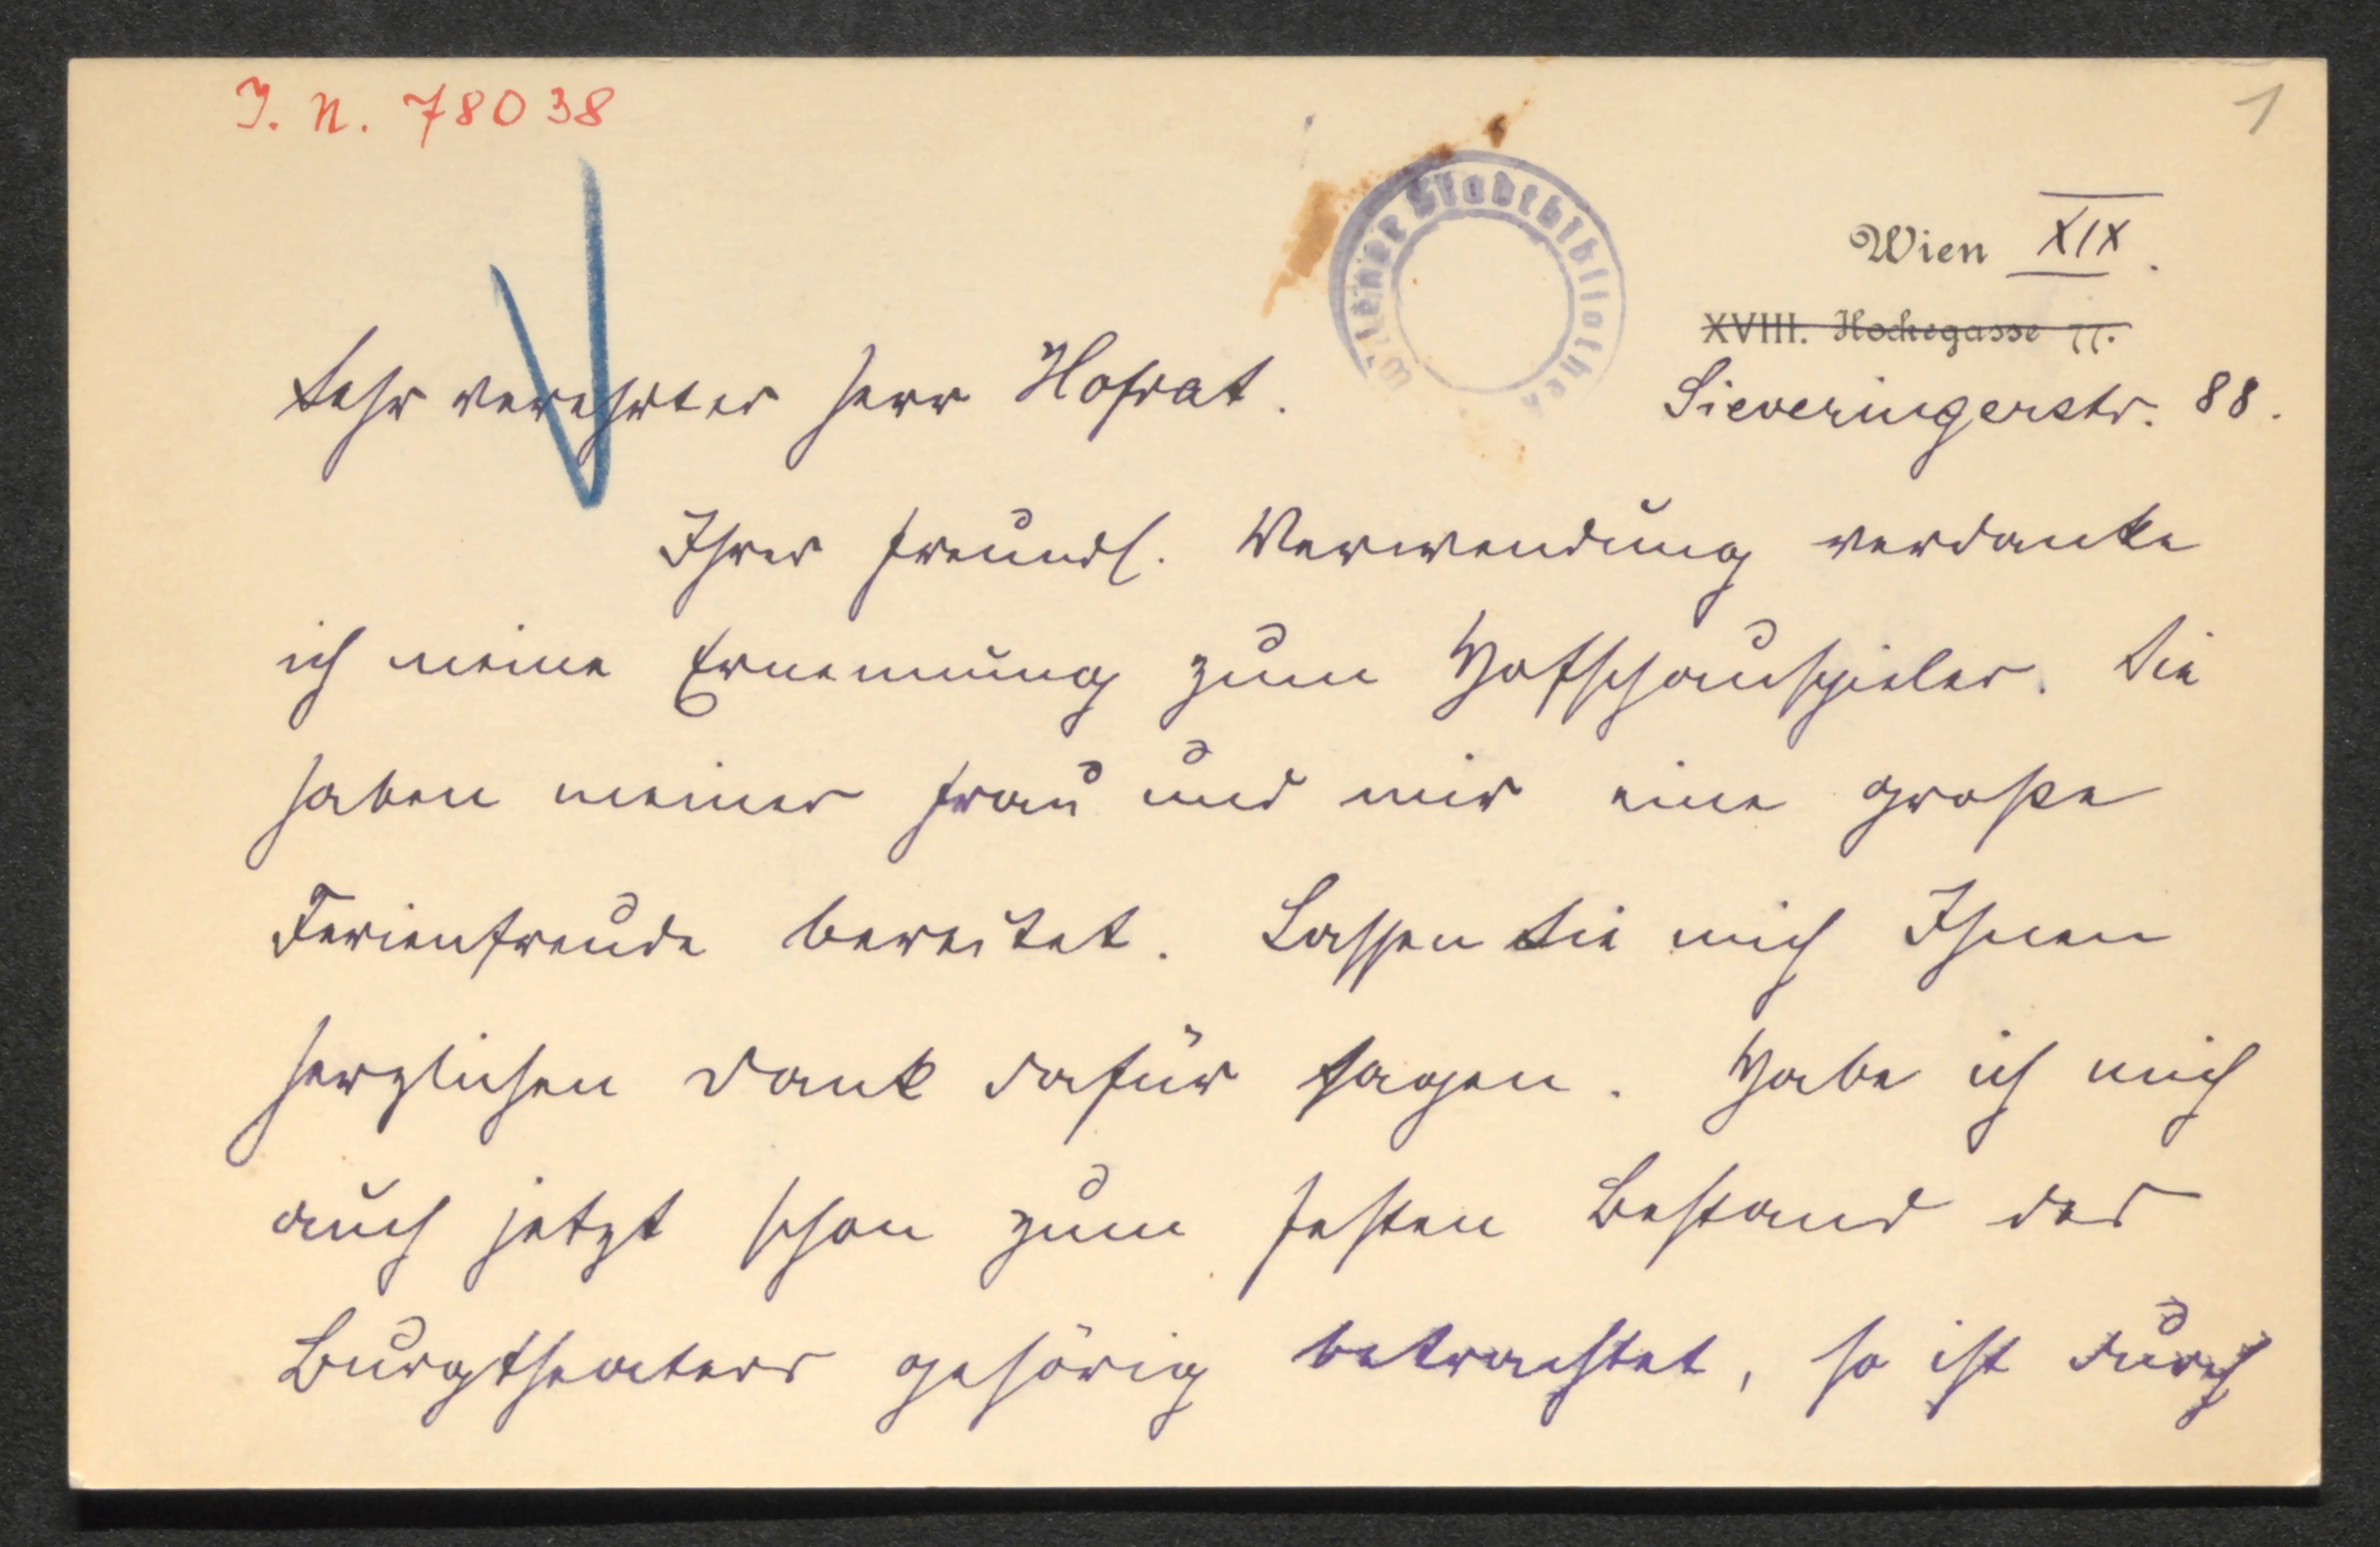 J. N. 78038
1
Wiener Stadtbibliothek
Wien XIX.
XVIII. Hockegasse 77.
Sieveringerstr. 88.
Sehr verehrter Herr Hofrat.
Ihrer freundl. Verwendung verdanke
ich meine Ernennung zum Hofschauspieler. Sie
haben meiner Frau und mir eine große
Ferienfreude bereitet. Lassen Sie mich Ihnen
herzlichen Dank dafür sagen. Habe ich mich
auch jetzt schon zum festen Bestand des
Burgtheaters gehörig betrachtet, so ist durch